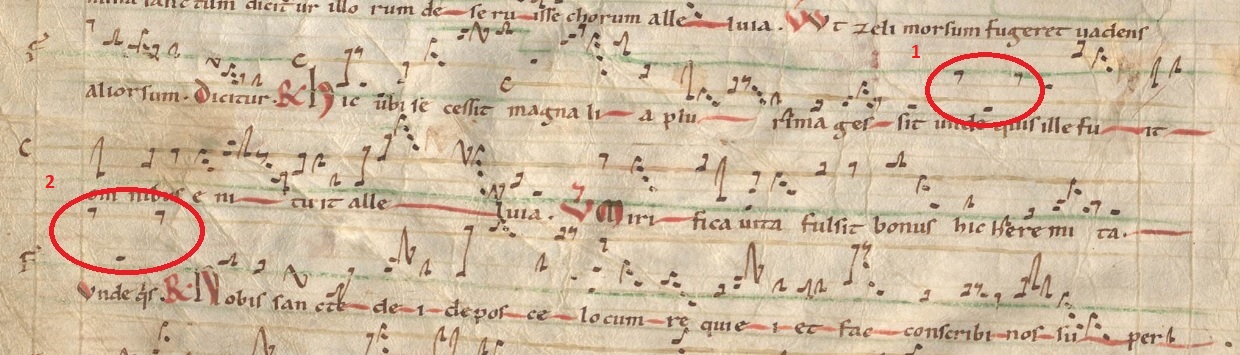 tum dicit ur illo rum de se ru isse chorum alle luia. Vt zeli morsum fugeret uadens
1
aliorsum. Dicitur. R Hic ubi se cessit magna li a plu rima ges sit unde quis ille fu it
2
om nibus e ni tuit alle luia. V Miri fica uita fulsit bonus hic here mi ta.
Vnde qs. R Nobis san cte de i depos ce locum re quie i et fac conscribi nos su per